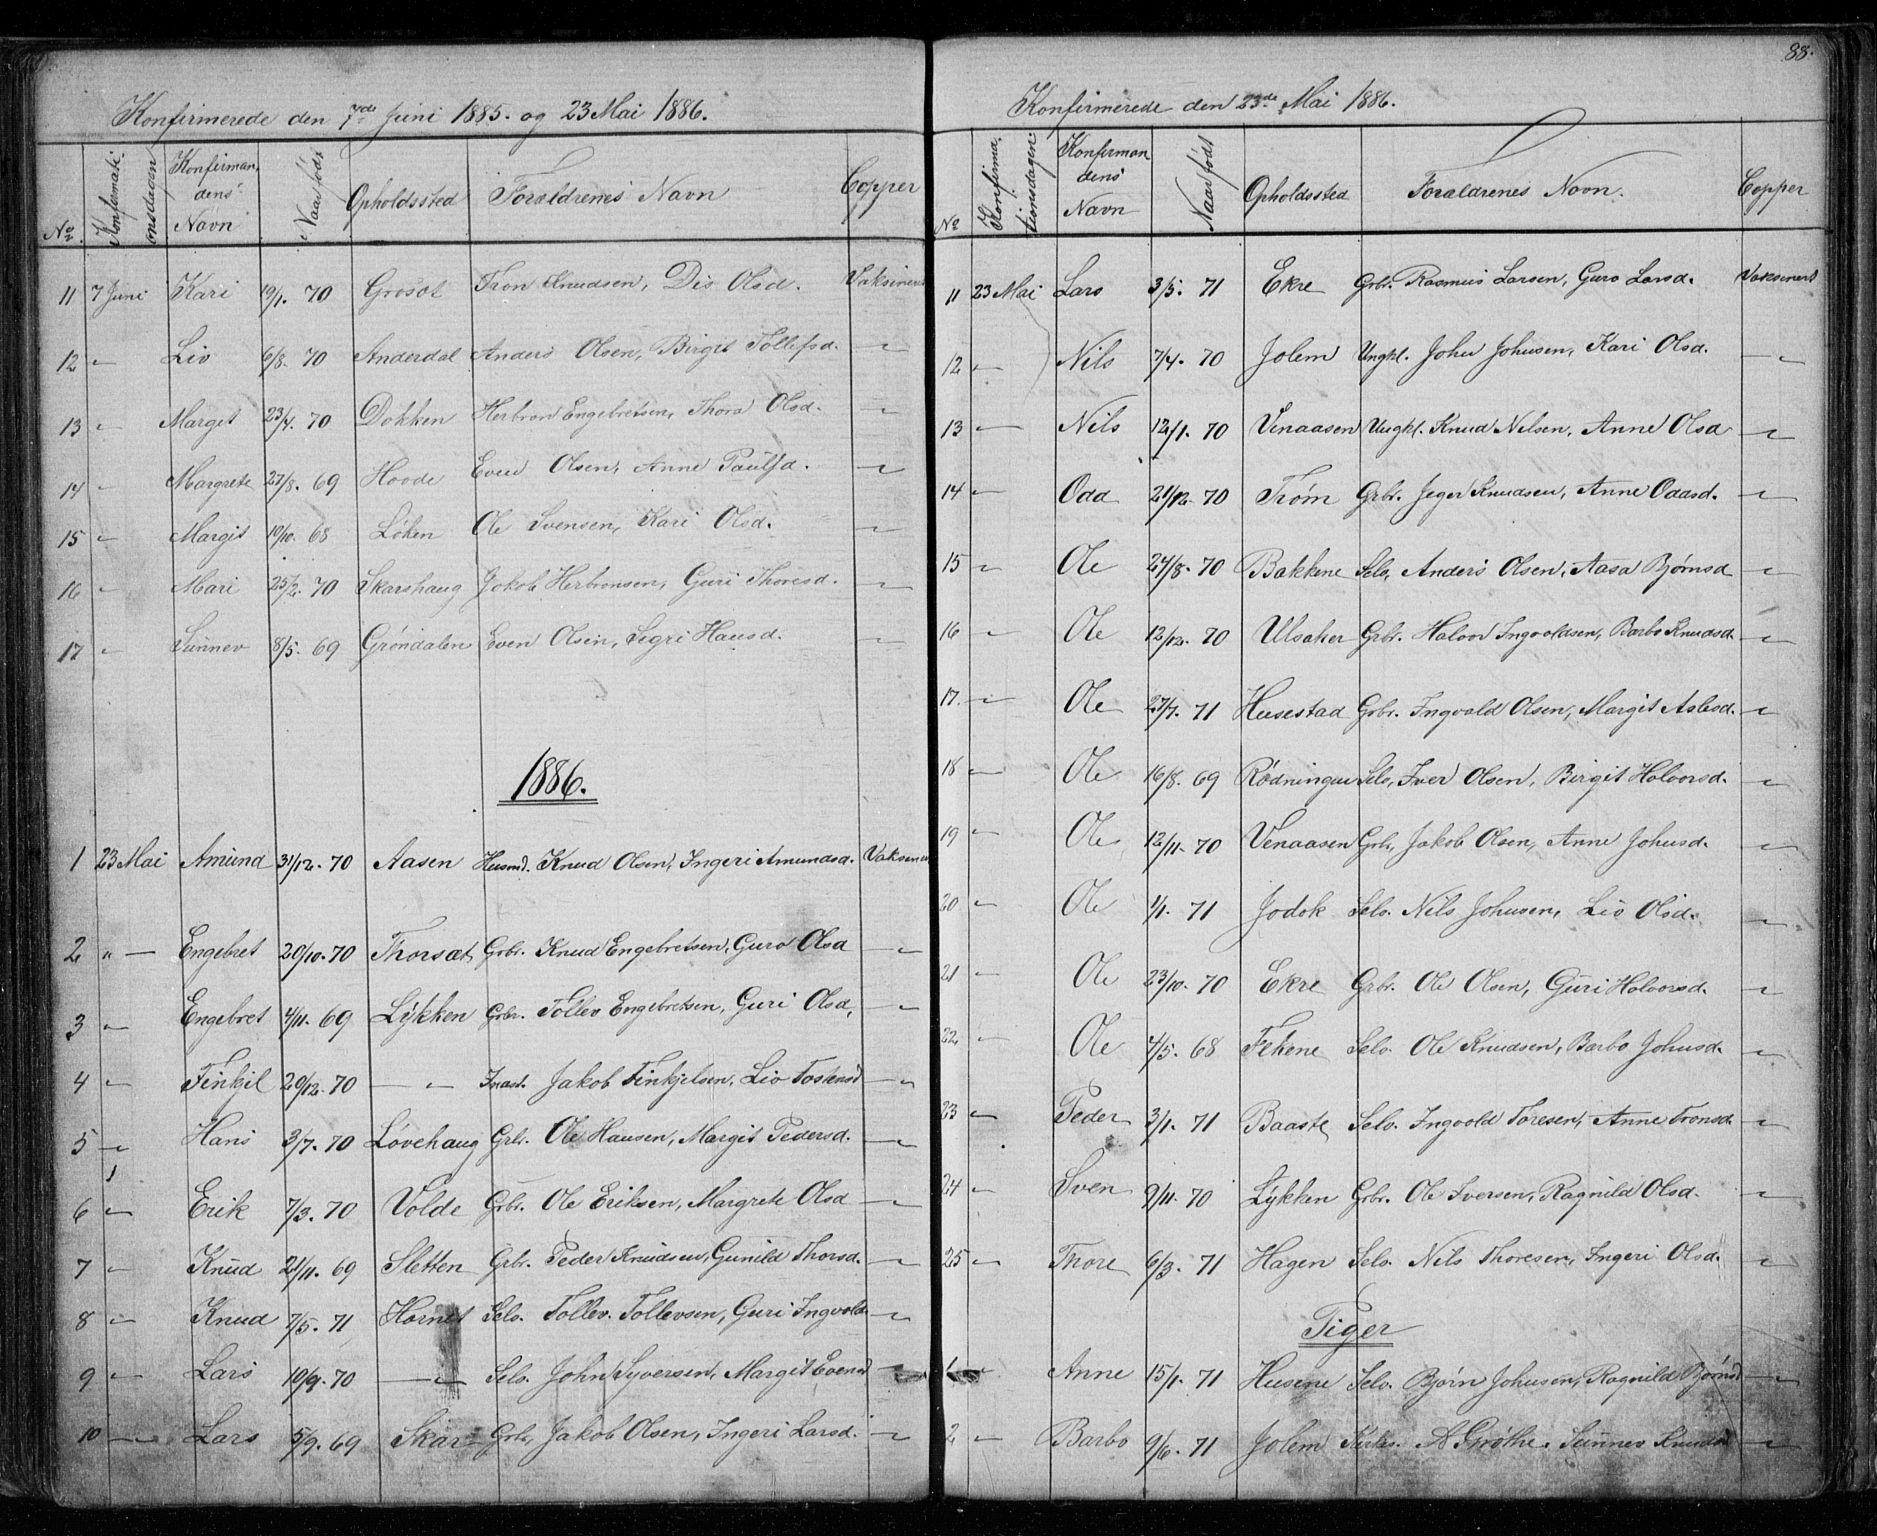 Konfirmerede den 7de Juni 1885. og 23 Mai 1886.
No. Konfirmationsdagen Konfirmandens Navn Naar født Opholdssted Forældrenes Navn Copper
11 7 Juni Kari 19/1. 70 Grosot Tron Knudsen, Dis Olsd. Vaksineret
12 " Liv 6/8. 70 Anderdal Anders Olsen, Birgit Tollefsd. "
13 " Marget 23/4. 70 Dokken Herbron Engebretsen, Thora Olsd. "
14 " Margrete 27/8. 69 Hovde Even Olsen, Anne Paulsd. "
15 " Margit 10/10. 68 Løken Ole Svensen, Kari Olsd. "
16 " Mari 25/2. 70 Skarshaug Jakob Herbronsen, Guri Thoresd. "
17 " Sünnev 8/5. 69 Grøndalen Even Olsen, Segri Hansd. "
1886.
1 23 Mai Amund 31/12. 70 Aasen Husmd. Knud Olsen, Ingeri Amundsd. Vaksineret
2 " Engebret 20/10. 70 Thorsæt Grbr. Knud Engebretsen, Guro Olsd "
3 " Engebret 4/11. 69 Lykken Grbr. Tollev Engebretsen, Guri Olsd, "
4 " Finkil 20/12. 70 " Inast. Jakob Finkjelsen, Liv Tostensd "
5 " Hans 3/7. 70 Løvehaug Grbr. Ole Hansen, Margit Pedersd. "
6 " Erik 7/3. 70 Volde Grbr. Ole Eriksen, Margrete Olsd "
7 " Knud 21/11. 69 Sletten Grbr. Peder Knudsen, Gunild Thorsd. "
8 " Knud 7/5. 71 Hornet Selv. Tollev Tollevsen, Guri Ingvolds "
9 " Lars 10/9. 70 " Selv. John Syversen, Margit Evensd "
10 " Lars 5/9. 69 Skar Grbr, Jakob Olsen, Ingeri Larsd. "
88.
Konfirmerede den 23de Mai 1886.
No Konfirmationsdagen Konfirmandens Navn Naar født Opholdssted Forældrenes Navn. Copper
11 23 Mai Lars 3/5. 71 Ekre Grbr. Rasmus Larsen, Guro Larsd. Vaksinert
12 " Nils 7/4. 70 Jolem Ungkl. John Johnsen, Kari Olsd. "
13 " Nils 12/1. 70 Venaasen Ungkl. Knud Nilsen, Anne Olsd "
14 " Odd 21/12. 70 Trøm Grbr. Jeger Knudsen, Anne Oddsd. "
15 " Ole 24/8. 70 Bakkene Selv, Anders Olsen, Aasa Bjørnsd "
16 " Ole 12/12. 70 Ulsaker Grbr. Halvor Ingvoldsen, Barbo Knudsd. "
17. " Ole 27/7. 71 Husestad Grbr. Ingvald Olsen, Margit Aslesd. "
18 " Ole 16/8. 69 Rødningen Selv, Iver Olsen, Birgit Holvorsd. "
19 " Ole 12/11. 70 Venaasen Grbr, Jakob Olsen, Anne Johnsd. "
20 " Ole 1/1. 71 Jodok Selv. Nils Johnsen, Liv Olsd. "
21 " Ole 23/10. 70 Ekre Grbr. Ole Olsen, Guri Holvorsd. "
22 " Ole 4/5. 68 Fekene Selv. Ole Knudsen, Barbo Johnsd. "
23 " Peder 3/1. 71 Baaste Selv. Ingvold Toresen, Anne Tronsd. "
24 " Sven 9/11. 70 Lykken Grbr. Ole Iversen, Ragnild Olsd. "
25 " Thore 6/3. 71 Hagen Selv. Nils Thoresen, Ingeri Olsd. "
Piger
1 " Anne 15/1. 71 Husene Selv. Bjørn Johnsen, Ragnild Bjørnsd "
2 " Barbo 9/6. 71 Jolem Kirks. A Grøthe. Sünnev Knudsd "